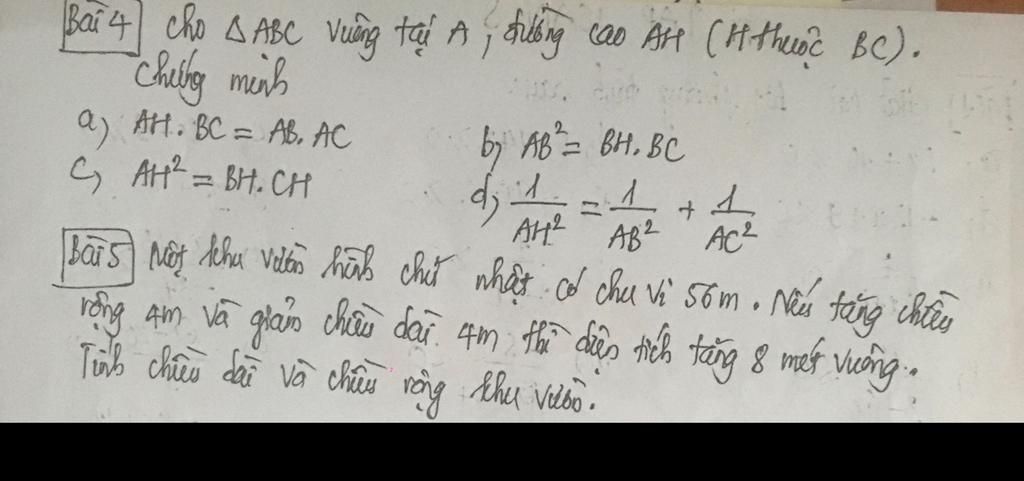 Bài 4 Cho △ABC vuông tại A, đường cao AH (H thuộc BC).
Chứng minh
a, AH.BC = AB.AC b, AB² = BH.BC
c, AH² = BH.CH d, 1/AH² = 1/AB² + 1/AC²
Bài 5 Một khu vườn hình chữ nhật có chu vi 56m. Nếu tăng chiều
rộng 4m và giảm chiều dài 4m thì diện tích tăng 8 mét vuông.
Tính chiều dài và chiều rộng khu vườn.